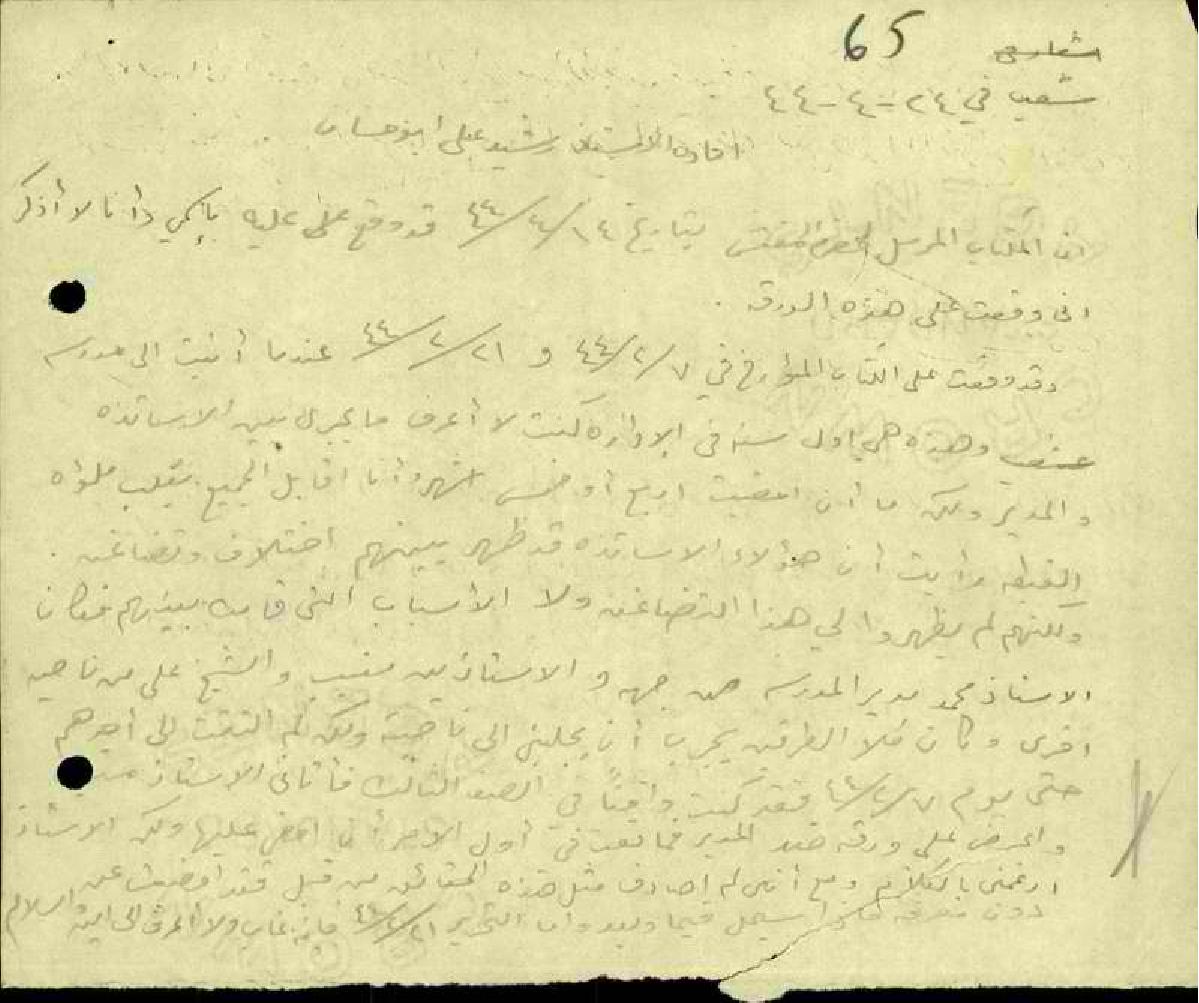 65
شعب في ٢٤-٤-٤٤
افادة الاستاذ رشيد علي ابو حسان
ان الكتاب المرسل لحضرة المفتش بتاريخ ١٤/٤/٤٤ قد وقع عليه بإسمي وأنا لا أذكر
اني وقعت على هذه الورقة .
وقد وقعت على الكتاب المؤرخ في ٧/٢/٤٤ و ٢١/٢/٤٤ عندما أتيت الى مدرسة
وهذه هي اول سنة في الإدارة كنت لا أعرف ما يجري بين الاساتذه
والمدير ولكن ما أن امضيت اربع أو خمس اشهر وأنا اقابل الجميع بقلب ملؤه
الغبطه رأيت أن هؤلاء الاساتذه قد ظهر بينهم اختلاف وتضاغن .
ولكنهم لم يظهروا لي هذا التضاغن ولا الأسباب التي قامت بينهم فكان
الاستاذ محمد مدير المدرسه من جهه و الاستاذين منيب والشيخ علي من ناحيه
اخرى وكان كلا الطرفين يجرب أن يجلبني الى ناحيته ولكن لم التفت الى أحدهم
حتى يوم ٧/٢/٤٤ فقد كنت واقفاً في الصف الثالث فأتاني الاستاذ منيب
واعرض علي ورقه ضد المدير فمانعت في أول الامر أن امضي عليها ولكن الاستاذ
ارغمني بالكلام ومع أنني لم اصادف مثل هذه الحقائق من قبل فقد امضيت عن
دون معرفه ماذا سيحصل فيما وبعد وأما التقرير ٢١/٢/٤٤ ولا أعرف الى اين السلام